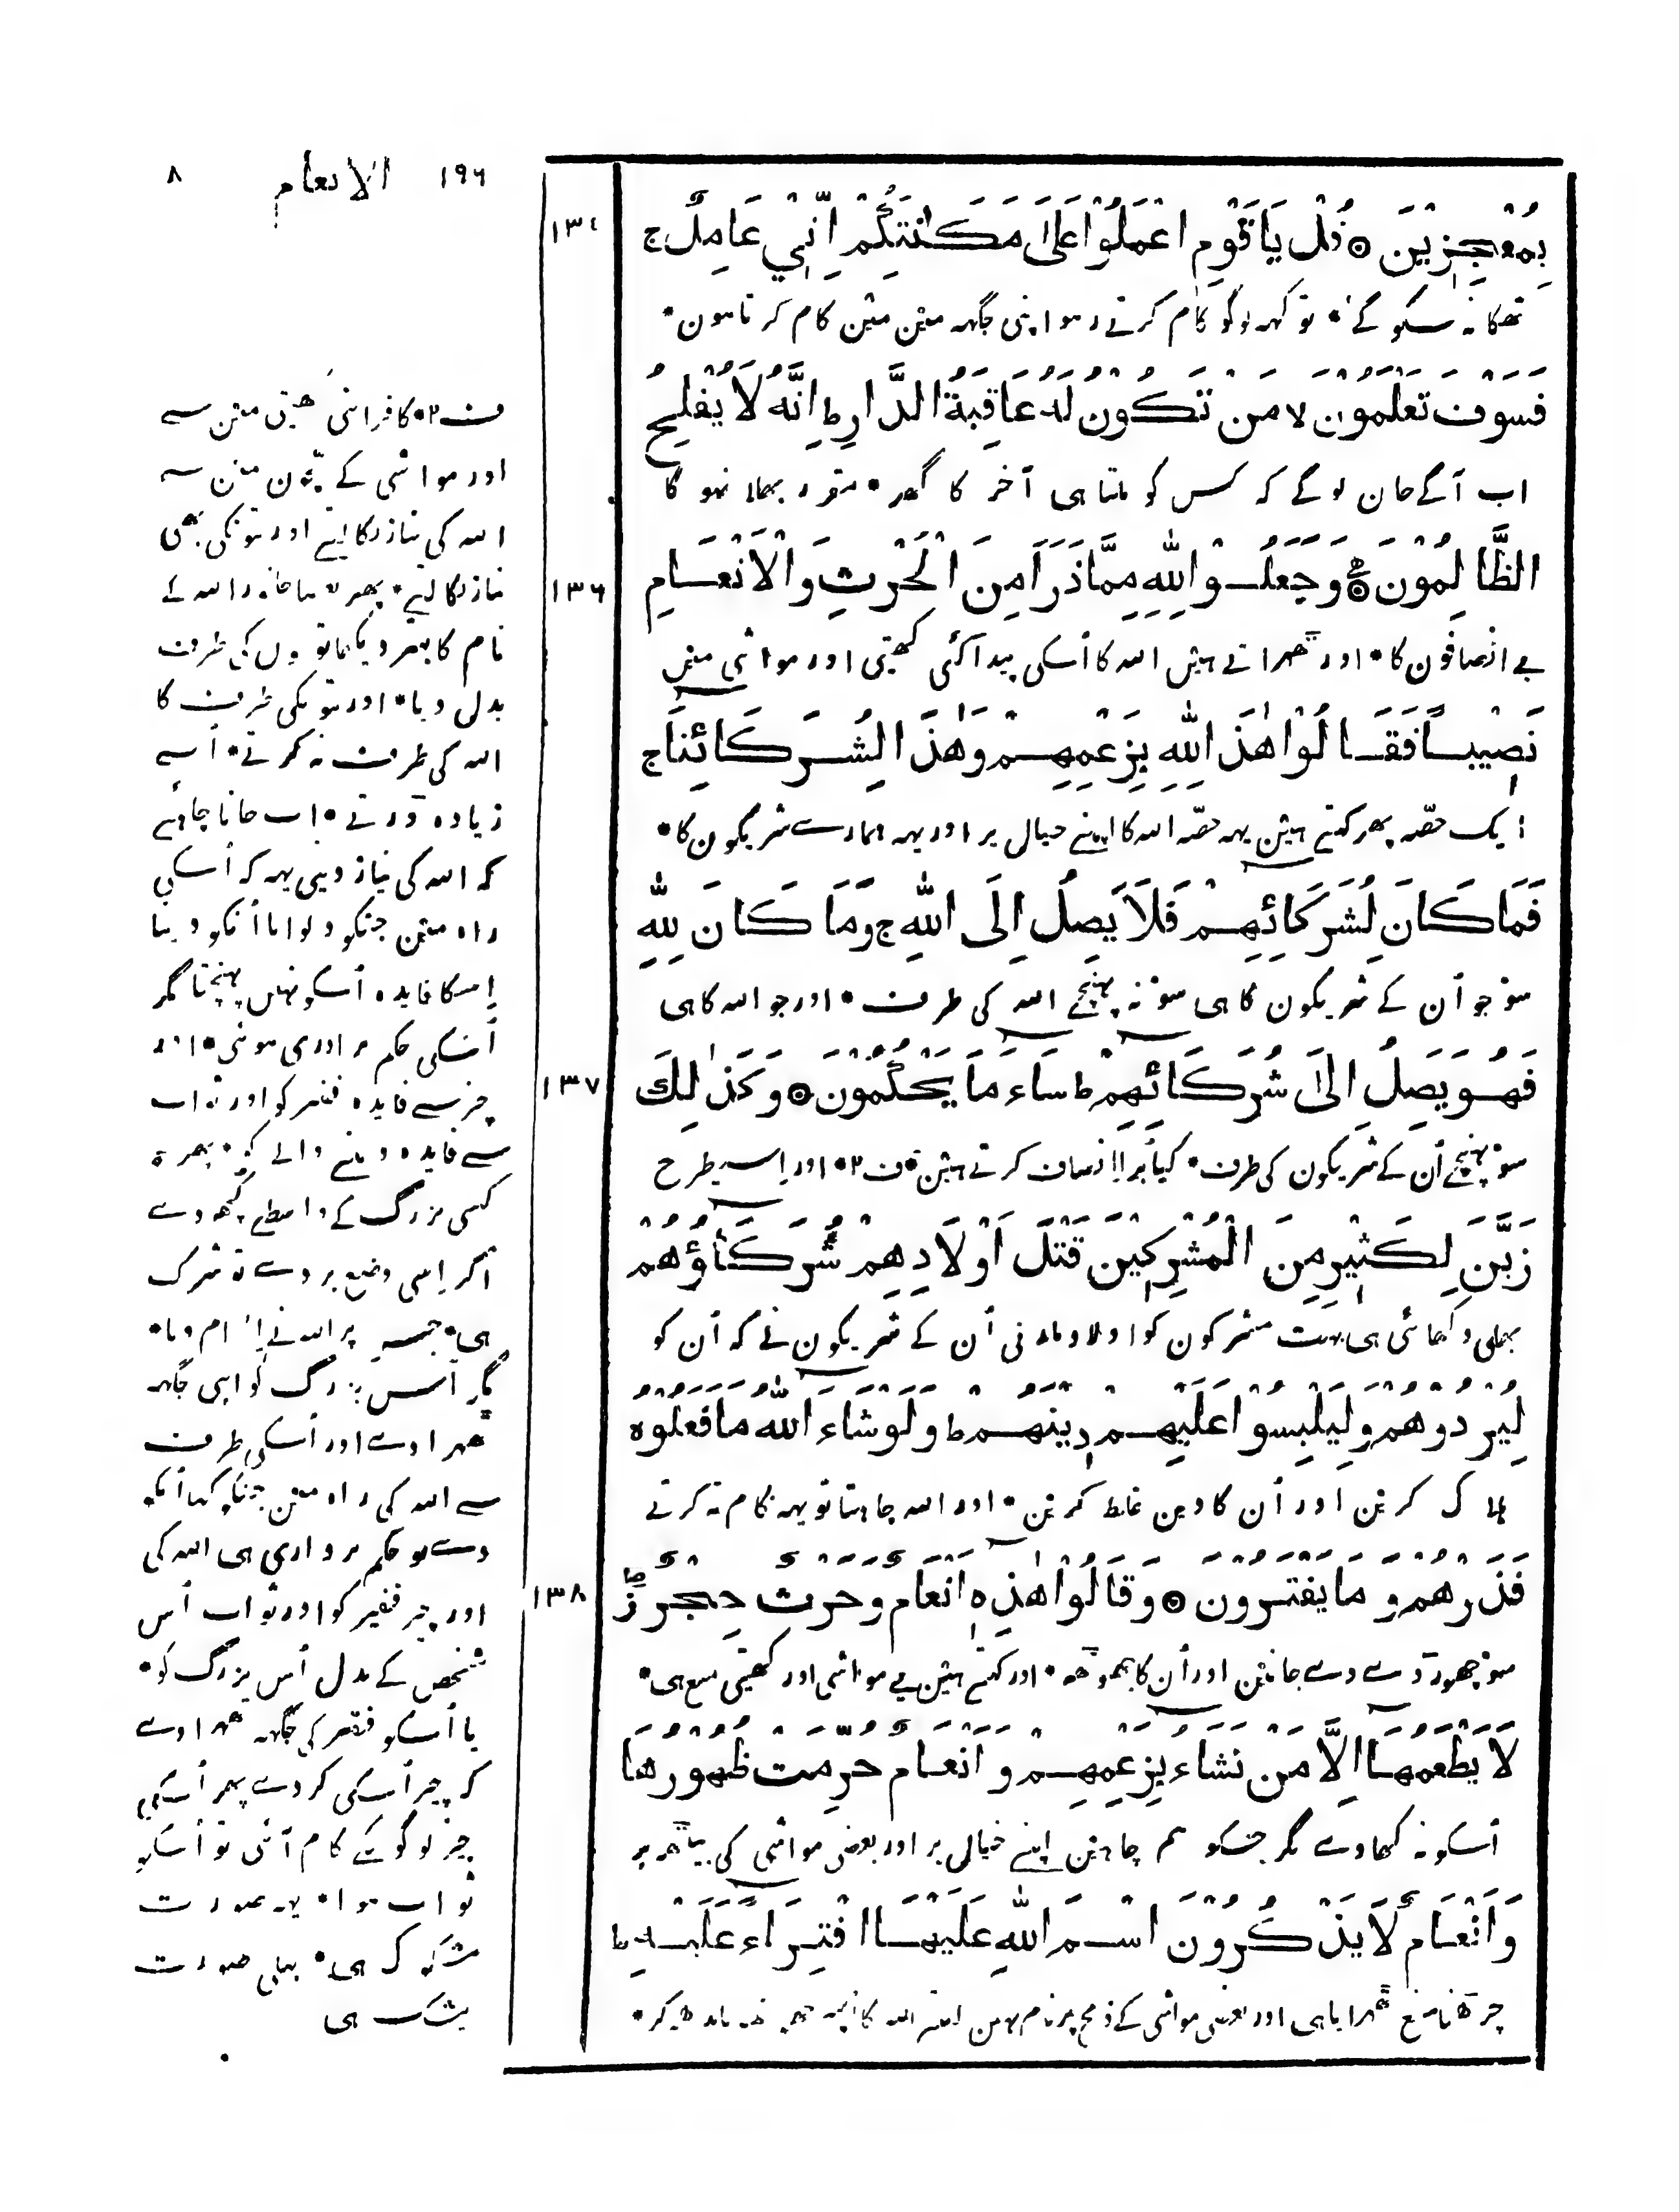 ١٩٦ الانعام ٨
١٣٤
بِمُعْجِزِيْنَ ۞ قُلْ يَاقَوْمِ اعْمَلُوْا عَلىٰ مَكَانَتِكُمْ اِنِّيْ عَامِلٌ ج
تھکا نہ سکوگے • تو کہہ لوگو کام کرتے رہو اپنی جگہہ مین مین کام کرتا ہون •
فَسَوْفَ تَعْلَمُوْنَ لا مَنْ تَكُوْنُ لَهُ عَاقِبَةُ الدَّارِ ط اِنَّهُ لَا يُفْلِحُ
اب آگے جان لوگے کہ کس کو ملتا ہی آخر کا گھر • مقرر بھلا نہو گا
١٣٦
الظَّالِمُوْنَ ۞ وَجَعَلُوْا لِلّٰهِ مِمَّا ذَرَاَ مِنَ الْحَرْثِ وَالْاَنْعَامِ
بے انصافون کا • اور ٹھہراتے ہین اللہ کا اُسکی پیدا کئی کھیتی اور مواشی مین
نَصِيْبًا فَقَالُوْا هٰذَا لِلّٰهِ بِزَعْمِهِمْ وَهٰذَا لِشُرَكَائِنَا ج
ایک حصّہ پھر کہتے ہین یہہ حصّہ اللہ کا اپنے خیال پر اور یہہ ہمارے شریکون کا •
فَمَا كَانَ لِشُرَكَائِهِمْ فَلَا يَصِلُ اِلَى اللّٰهِ ج وَمَا كَانَ لِلّٰهِ
سو جو اُن کے شریکون کا ہی سو نہ پہنچے اللہ کی طرف • اور جو اللہ کا ہی
١٣٧
فَهُوَ يَصِلُ اِلىٰ شُرَكَائِهِمْ ط سَاءَ مَا يَحْكُمُوْنَ ۞ وَكَذٰلِكَ
سو پہنچے اُن کے شریکون کی طرف • کیا بُرا انصاف کرتے ہین • ف ٢ • اور اِسیطرح
زَيَّنَ لِكَثِيْرٍ مِنَ الْمُشْرِكِيْنَ قَتْلَ اَوْلَادِهِمْ شُرَكَاؤُهُمْ
بھلی دکھائی ہی بہت مشرکون کو اولاد مارنی اُن کے شریکون نے کہ اُن کو
لِيُرْدُوْهُمْ وَلِيَلْبِسُوْا عَلَيْهِمْ دِيْنَهُمْ ط وَلَوْ شَاءَ اللّٰهُ مَا فَعَلُوْهُ
ہلاک کرین اور اُن کا دین غلط کرین • اور اللہ چاہتا تو یہہ کام نہ کرتے
١٣٨
فَذَرْهُمْ وَمَا يَفْتَرُوْنَ ۞ وَقَالُوْا هٰذِهٖ اَنْعَامٌ وَحَرْثٌ حِجْرٌ
سو چھوڑ دے وے جانین اور اُن کا جھوٹھہ • اور کہتے ہین یے مواشی اور کھیتی منع ہی •
لَا يَطْعَمُهَا اِلَّا مَنْ نَشَاءُ بِزَعْمِهِمْ وَاَنْعَامٌ حُرِّمَتْ ظُهُوْرُهَا
اُسکو نہ کھاوے مگر جسکو ہم چاہین اپنے خیال پر اور بعضی مواشی کی پیٹھہ پر
وَاَنْعَامٌ لَا يَذْكُرُوْنَ اسْمَ اللّٰهِ عَلَيْهَا افْتِرَاءً عَلَيْهِ ط
چڑھنا منع ٹھہرایا ہی اور بعضی مواشی کے ذبح پر نام اللہ کا باندھ کر •
ف ٢ • کافر اپنی کھیتی مین سے
اور مواشی کے بچّون مین سے
اللہ کی نیاز نکالتے اور بتونکی بھی
نیاز نکالتے • پھر جانور اللہ کے
نام کا بہتر دیکھا تو بتون کی طرف
بدل دیا • اور بتونکی طرف کا
اللہ کی طرف نہ کرتے • اُسے
زیادہ ڈرتے • اب جانا چاہئے
کہ اللہ کی نیاز دینی یہہ کہ اُسکی
راہ مین جنکو دلوایا اُنکو دینا
اِسکا فایدہ اُسکو نہین پہنچتا مگر
اُسکی حکم برداری ہوئی • اور
چیز سے فایدہ فقیر کو اور ثواب
سے فایدہ دینے والے کو • پھر
کسی بزرگ کے واسطے کچھ دے
اگر اِسی وضع پر دے تو شرک
ہی • جسپر اللہ نے اِلزام دیا •
مگر اُس بزرگ کو اپنی جگہہ
ٹھہراوے اور اُسکی طرف
سے اللہ کی راہ مین جنکو کہا اُنکو
دے تو حکم برداری ہی اللہ کی
اور چیز فقیر کو اور ثواب اُس
شخص کے بدل اُس بزرگ کو •
یا اُسکو فقیر کی جگہہ ٹھہراوے
کہ چیز اُسکی کردے پھر اُسکی
چیز لوگون کے کام آئی تو اُسکو
ثواب ہوا • یہہ صورت
مشکوک ہی • پہلی صورت
بیشک ہی